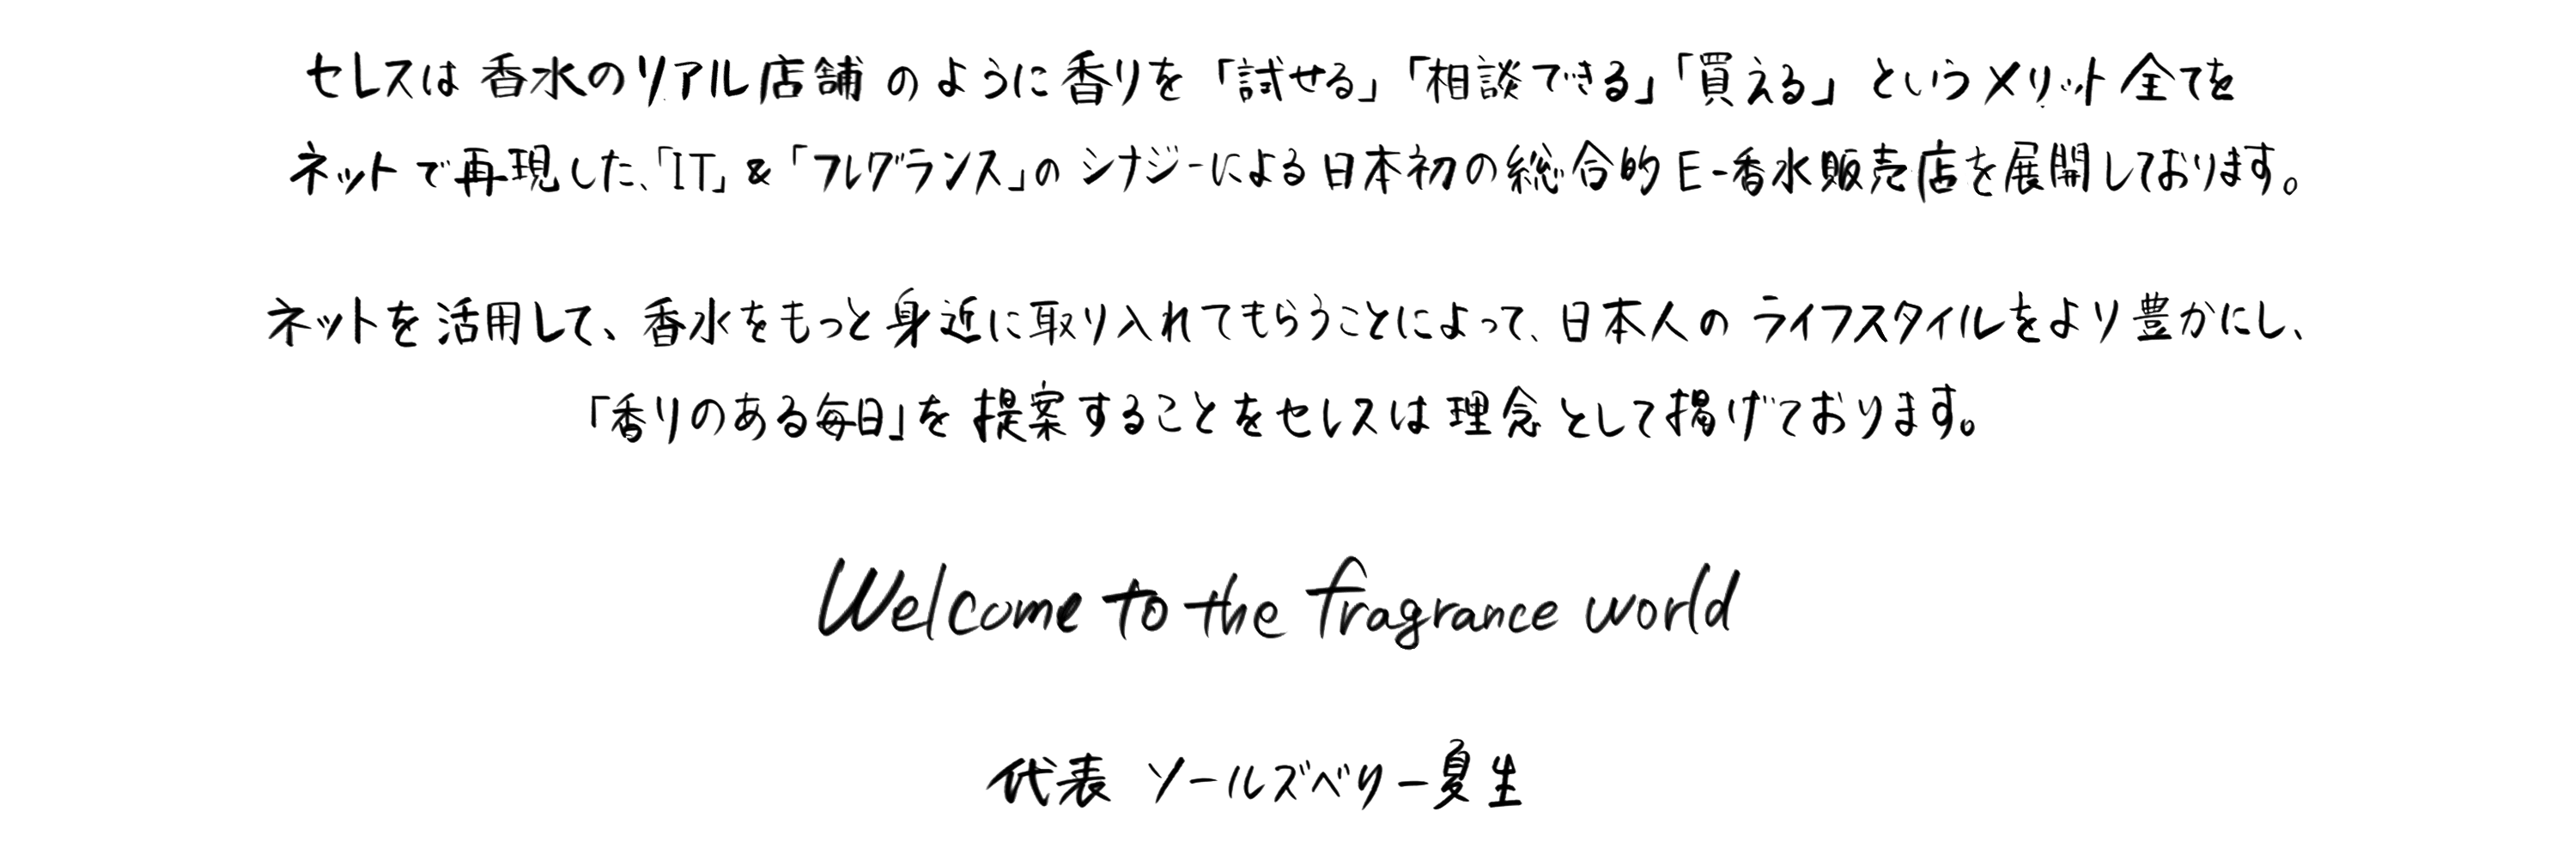 セレスは香水のリアル店舗のように香りを「試せる」「相談できる」「買える」というメリット全てを
ネットで再現した、「IT」&「フレグランス」のシナジーによる日本初の総合的E-香水販売店を展開しております。
ネットを活用して、香水をもっと身近に取り入れてもらうことによって、日本人のライフスタイルをより豊かにし、
「香りのある毎日」を提案することをセレスは理念として掲げております。
Welcome to the fragrance world
代表 ソールズベリー夏生